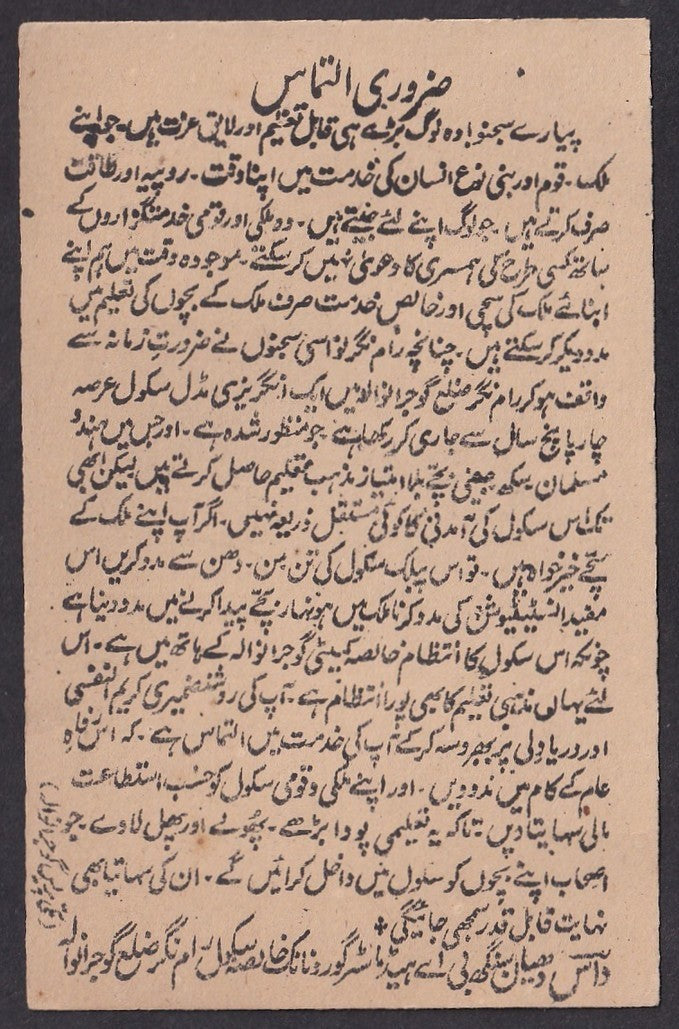 ضروری التماس
پیارے سجنو! وہ لوگ بڑے ہی قابل تعظیم اور لایق عزت ہیں۔ جو اپنے
ملک۔ قوم اور بنی نوع انسان کی خدمت میں اپنا وقت۔ روپیہ اور طاقت
صرف کرتے ہیں۔ جو لوگ اپنے لئے جیتے ہیں۔ وہ ملکی اور قومی خدمتگزاروں کے
ساتھ کسی طرح کی ہمسری کا دعویٰ نہیں کر سکتے۔ موجودہ وقت میں ہم اپنے
ابنائے ملک کی سچی اور خالص خدمت صرف ملک کے بچوں کی تعلیم میں
مدد دیکر کر سکتے ہیں۔ چنانچہ رام نگر نواسی سجنوں نے ضرورت زمانہ سے
واقف ہو کر رام نگر ضلع گوجرانوالہ میں ایک انگریزی مڈل سکول عرصہ
چار پانچ سال سے جاری کر رکھا ہے۔ جو منظور شدہ ہے۔ اور جس میں ہندو
مسلمان سکھ جینی بچے بلا امتیاز مذہب تعلیم حاصل کرتے ہیں لیکن ابھی
تک اس سکول کی آمدنی کا کوئی مستقل ذریعہ نہیں۔ اگر آپ اپنے ملک کے
سچے خیرخواہ ہیں۔ تو اس پبلک سکول کی تن۔ من۔ دھن سے مدد کریں اس
مفید انسٹیٹیوشن کی مدد کرنا ملک میں ہونہار بچے پیدا کرنے میں مدد دینا ہے
چونکہ اس سکول کا انتظام خالصہ کمیٹی گوجرانوالہ کے ہاتھ میں ہے۔ اس
لئے یہاں مذہبی تعلیم کا بھی پورا انتظام ہے۔ آپ کی روشنضمیری کریم النفسی
اور دریا دلی پر بھروسہ کر کے آپ کی خدمت میں التماس ہے۔ کہ اس رفاہ
عام کے کام میں مدد دیں۔ اور اپنے ملکی و قومی سکول کو حسب استطاعت
مالی سہایتا دیں۔ تاکہ یہ تعلیمی پودا بڑھے۔ پھولے اور پھل لاوے۔ جو
اصحاب اپنے بچوں کو سکول میں داخل کرائیں گے۔ ان کی سہایتا بھی
نہایت قابل قدر سمجھی جائیگی
داس دھیان سنگھ بی اے ہیڈ ماسٹر گورو نانک خالصہ سکول رام نگر ضلع گوجرانوالہ
پریس گوجرانوالہ